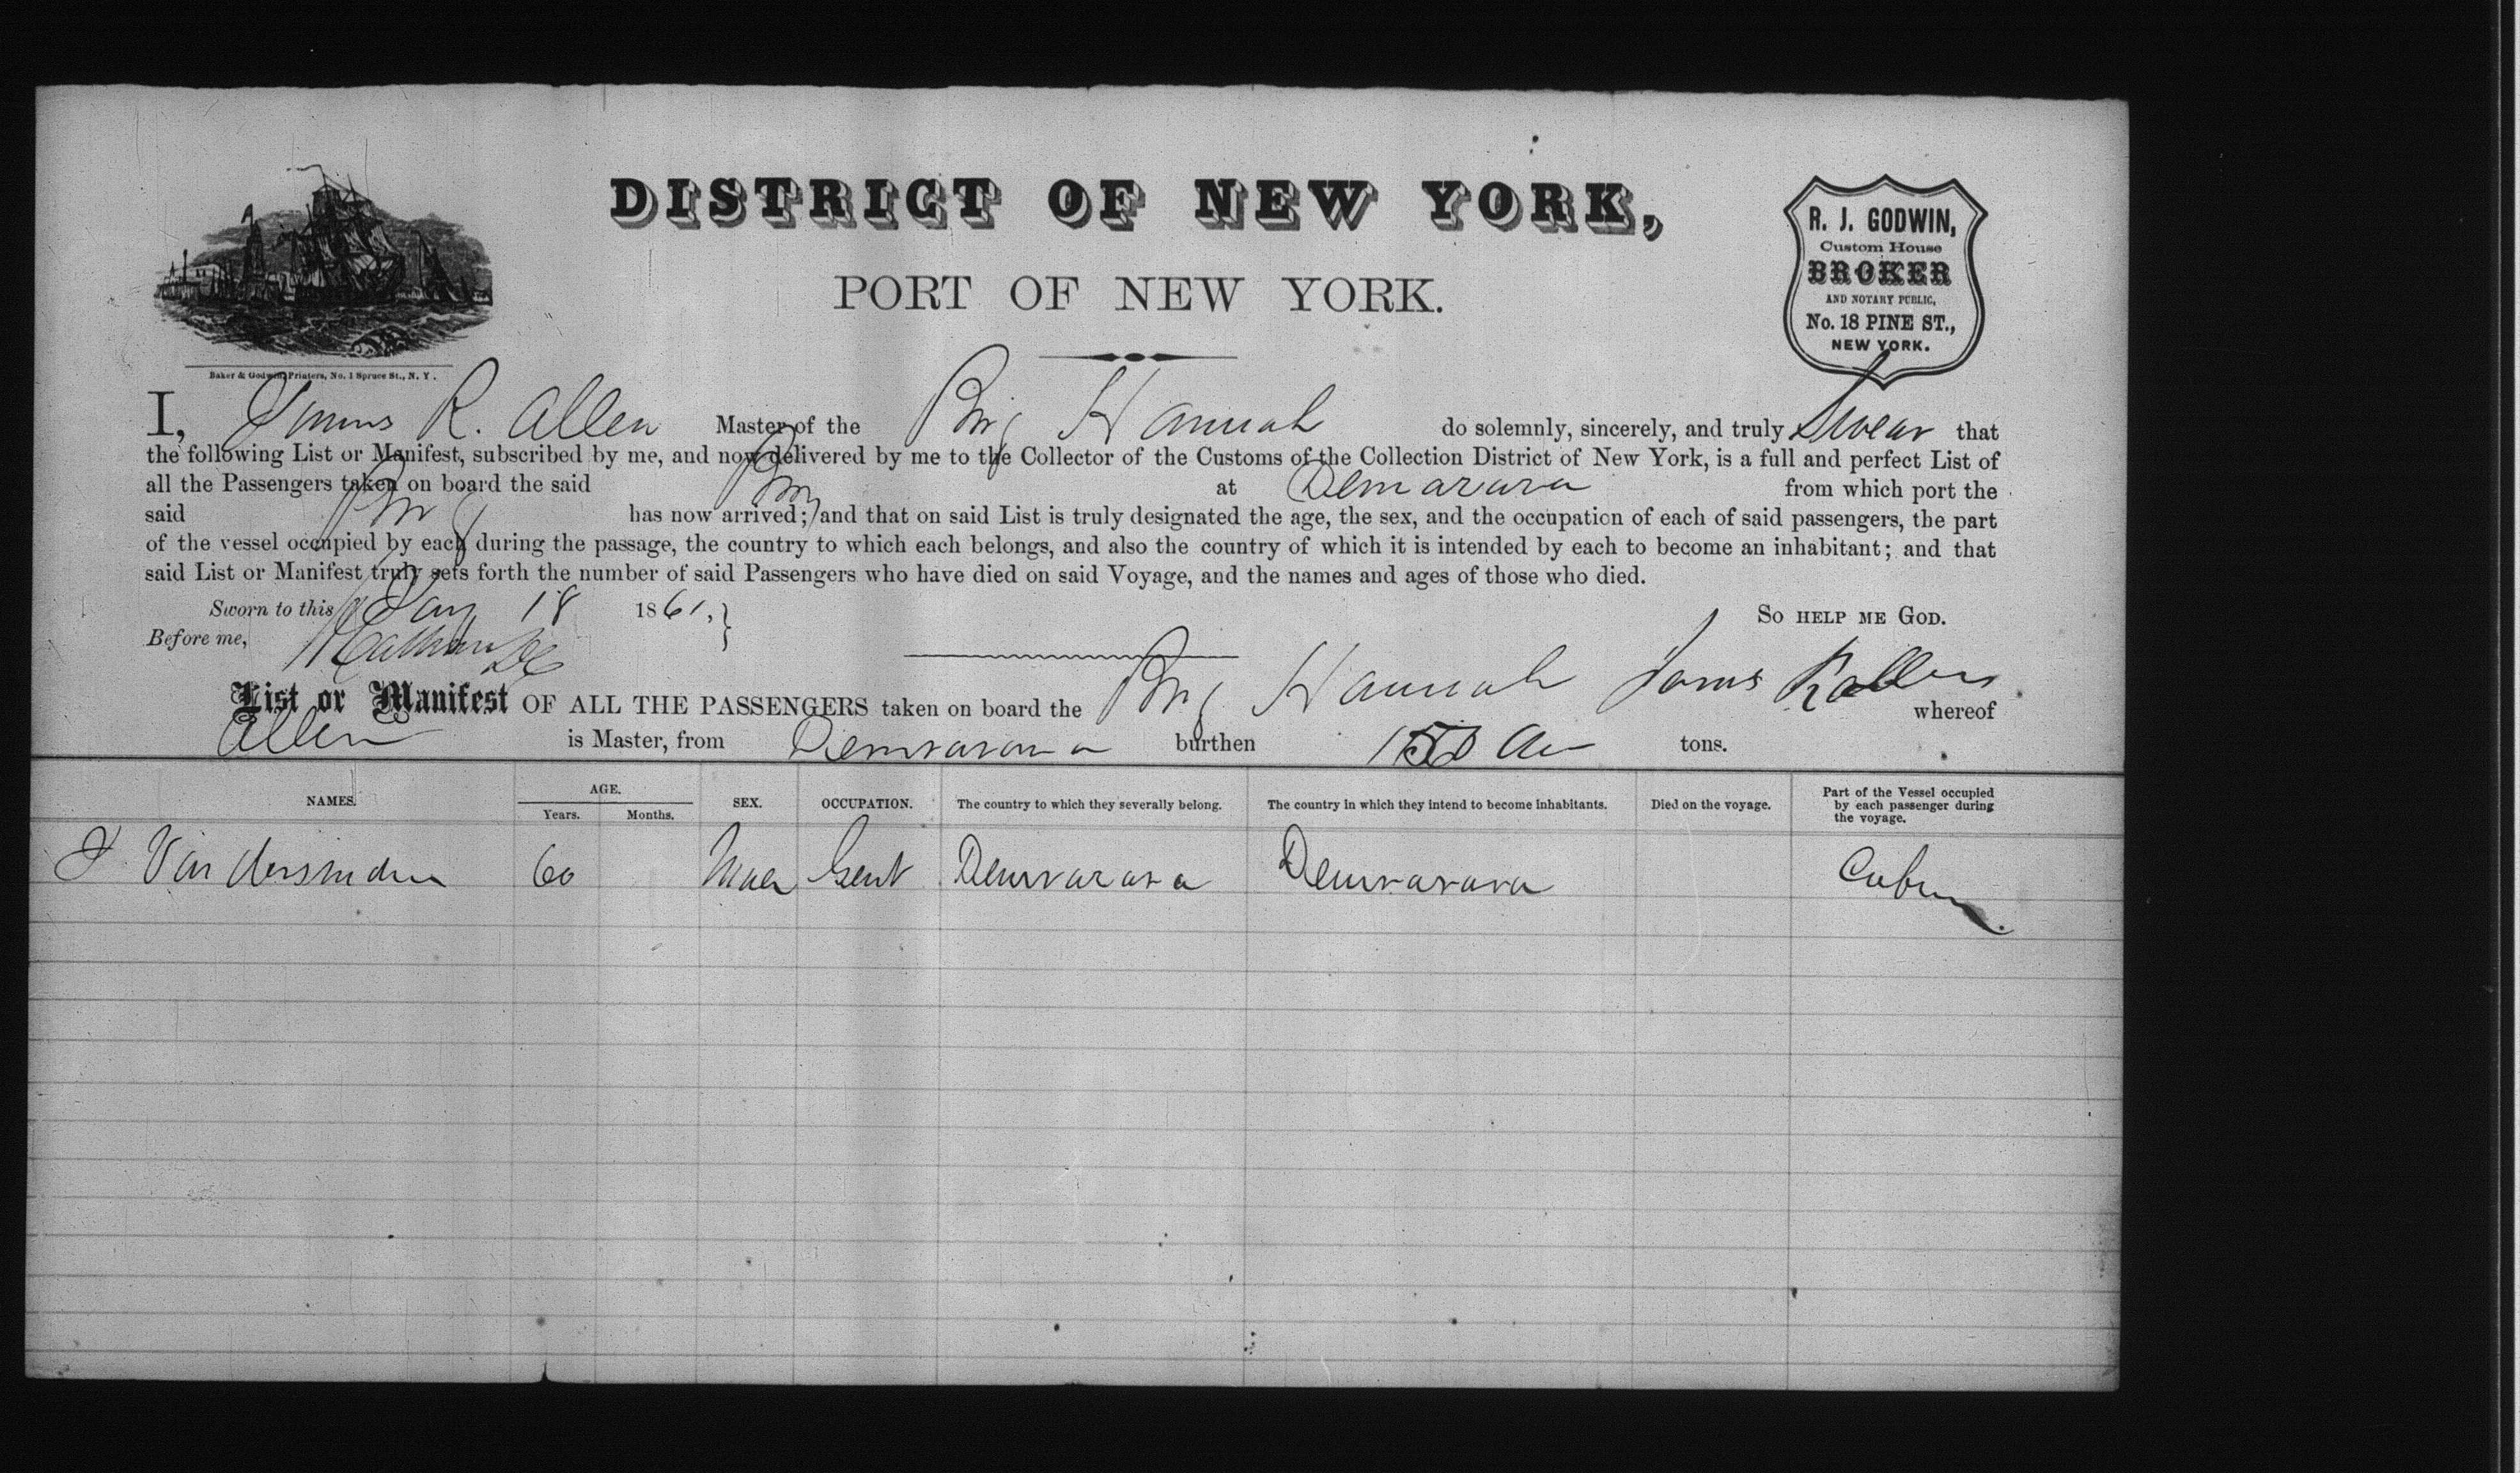 DISTRICT OF NEW YORK,
PORT OF NEW YORK.
R. J. GODWIN,
Custom House
BROKER
AND NOTARY PUBLIC,
No. 18 PINE ST.,
NEW YORK.
Baker & Godwin, Printers, No. 1 Spruce St., N. Y.
I, James R. Allen Master of the Brig Hannah do solemnly, sincerely, and truly Swear that
the following List or Manifest, subscribed by me, and now delivered by me to the Collector of the Customs of the Collection District of New York, is a full and perfect List of
all the Passengers taken on board the said Brig at Demarara from which port the
said Brig has now arrived; and that on said List is truly designated the age, the sex, and the occupation of each of said passengers, the part
of the vessel occupied by each during the passage, the country to which each belongs, and also the country of which it is intended by each to become an inhabitant; and that
said List or Manifest truly sets forth the number of said Passengers who have died on said Voyage, and the names and ages of those who died.
Sworn to this Jany 18 1861, So help me God.
Before me,
James R Allen
List or Manifest OF ALL THE PASSENGERS taken on board the Brig Hannah whereof
Allen is Master, from Demrarara burthen tons.
NAMES. AGE. SEX. OCCUPATION. The country to which they severally belong. The country in which they intend to become inhabitants. Died on the voyage. Part of the Vessel occupied by each passenger during the voyage.
Years. Months.
60 Gent Demrarara Demrarara Cabin